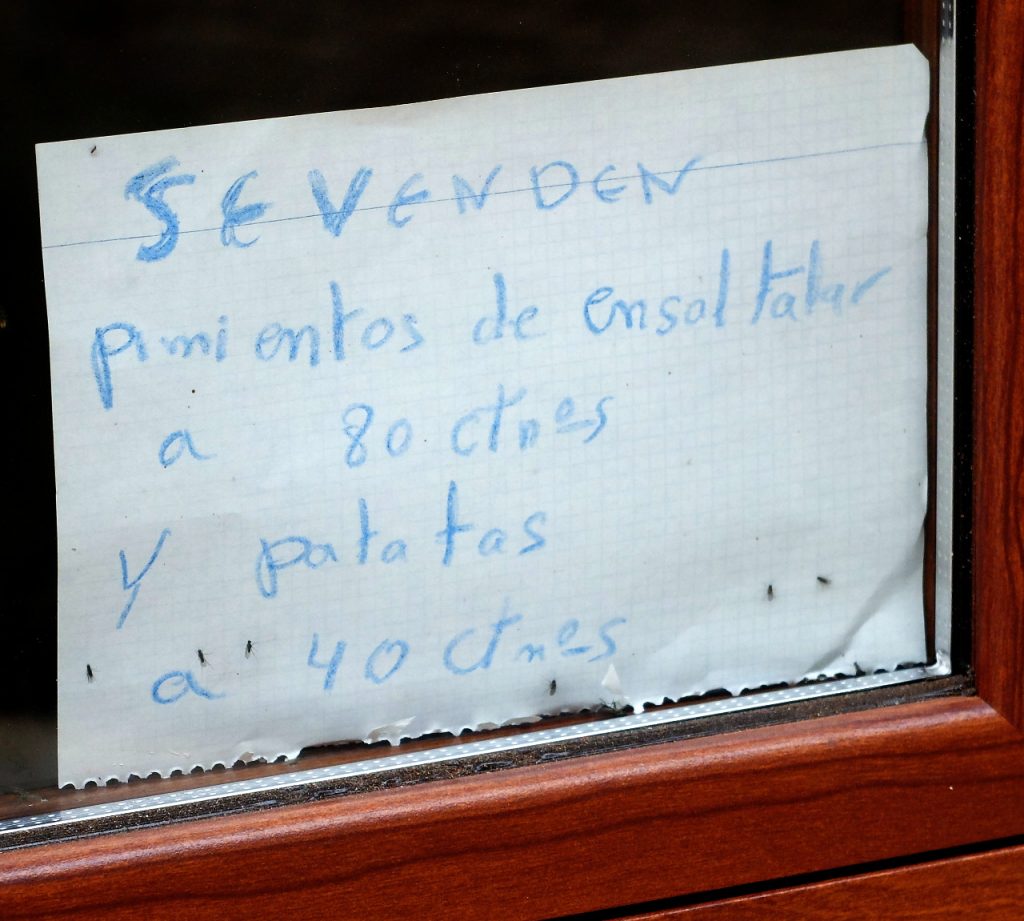 SE VENDEN
pimientos de ensaltalar
a 80 ctnºs
y patatas
a 40 ctnºs